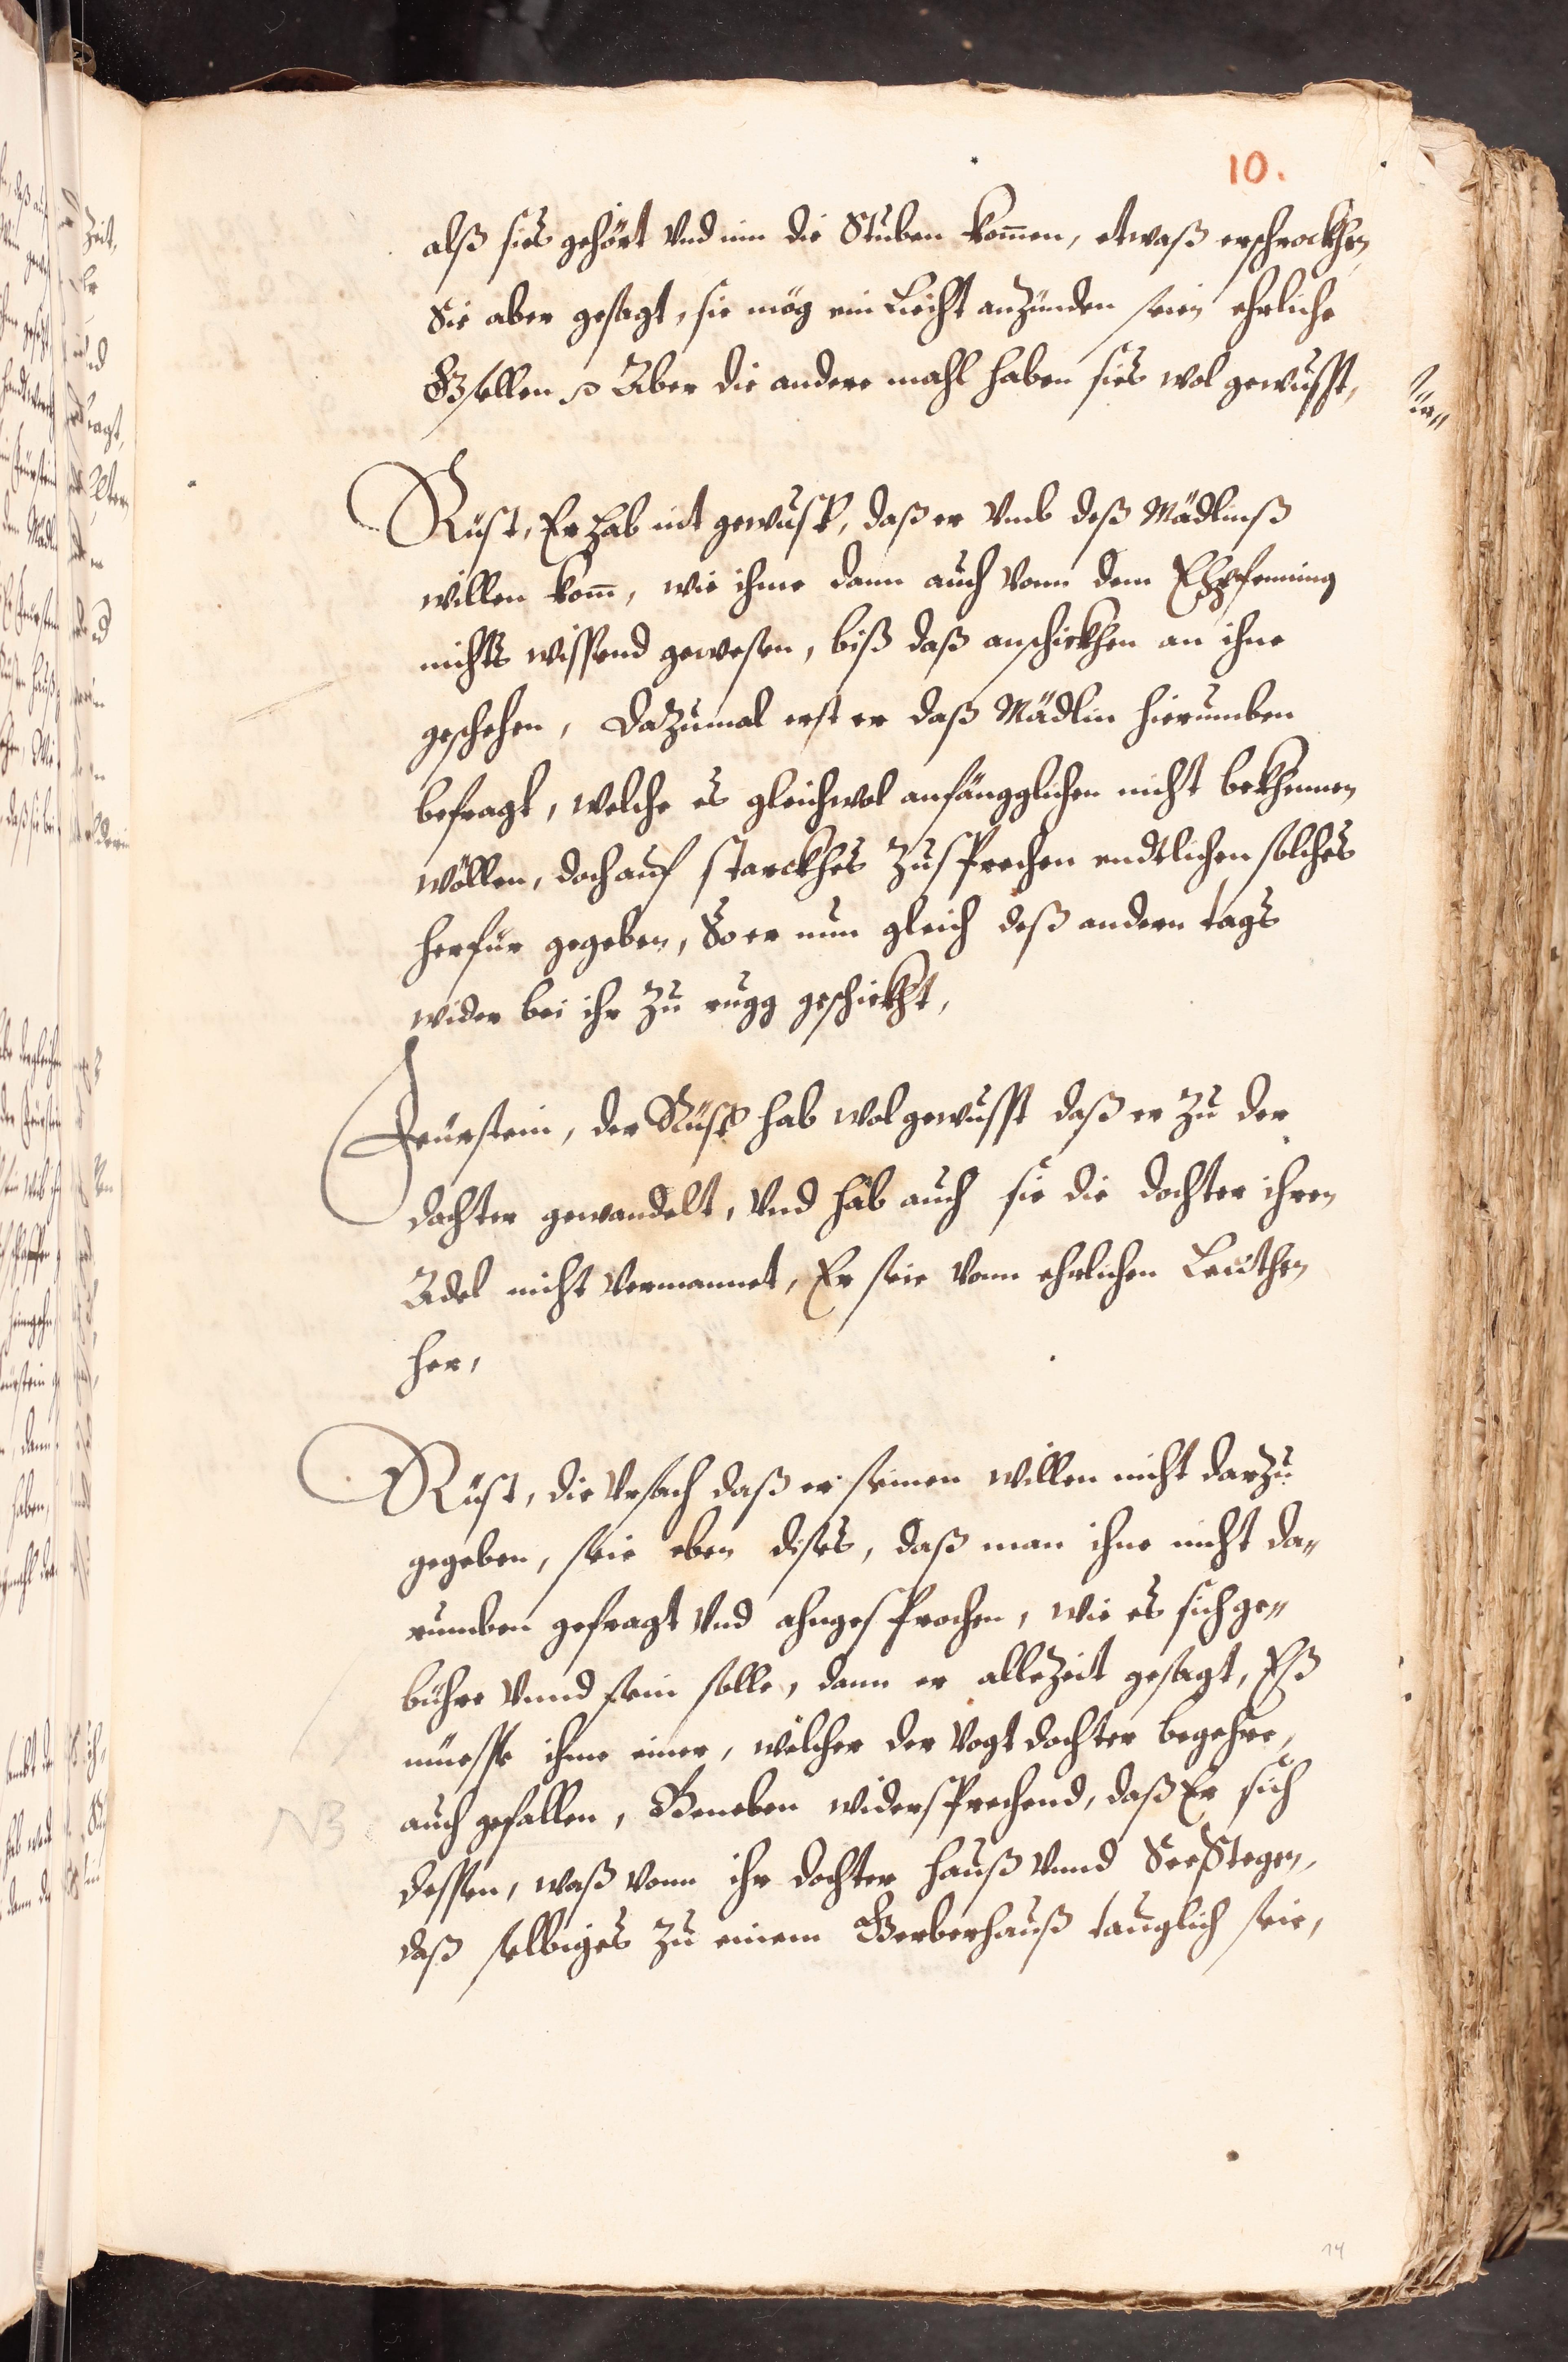 10.
alß sies gehört vnd inn die Stuben kom̅en, etwaß erschrockhen,
Sie aber gesagt, sie mög ein Liecht anzünden seien ehrliche
Gsellen Aber die andere mahl haben sies wol gewusst,
Rüst, Er hab nit gewüst, daß er vmb deß Mädlinß
willen kom̅, wie ihme dann auch vonn dem Ehpfenning
nichts wissend gewesen, biß daß anschickhen an ihne
geschehen, Dazumal erst er daß Mädlin hierumben
befragt, welche es gleichwol anfängglichen nicht bekhennen
wöllen, doch auf starckhes Zusprechen endtlichen solches
herfür gegeben, So er nun gleich deß andern tags
wider bei ihr Zu rugg geschickht,
Feürstein, der Rüst hab wol gewusst daß er zu der
dochter gewandelt, vnd hab auch sie die dochter ihren
Adel nicht vermannet, Er seie vonn ehrlichen Leüthen
her,
Rüst, die Vrsach daß er seinen willen nicht darzu
gegeben, seie eben dises, daß man ihne nicht da„
rumben gefragt vnd ahngesprochen, wie es sich ge„
bühre vnnd sein solle, dann er alleZeit gesagt, Eß
müesse ihme einer, welcher der Vogt dochter begehre,
auch gefallen, Beneben widersprechend, daß Er sich
NB
dessen, waß vonn ihr dochter hauß vnnd SeeStegen,
daß selbiges zu einem Gerberhauß tauglich seie,
14